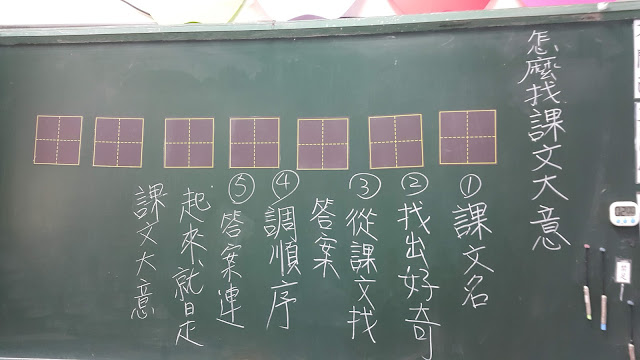 怎麼找課文大意
①課文名
②找出好奇
③從課文找
答案
④調順序
⑤答案連
起來,就是
課文大意